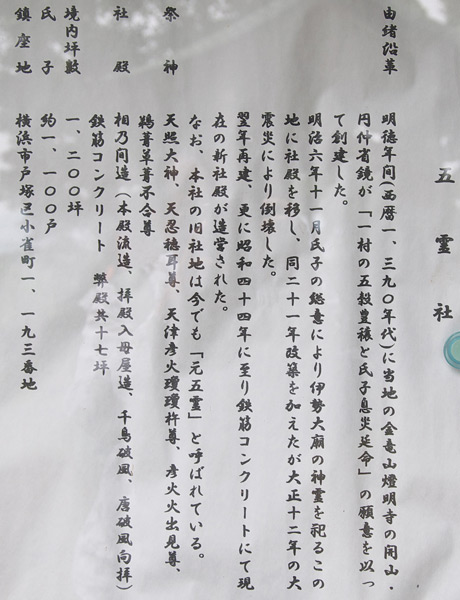 五霊社
由緒沿革
明徳年間(西暦一、三九〇年代)に当地の金竜山燈明寺の開山・
円仲省鏡が「一村の五穀豊穣と氏子息災延命」の願意を以っ
て創建した。
明治六年十一月氏子の総意により伊勢大廟の神霊を祀るこの
地に社殿を移し、同二十一年改築を加えたが大正十二年の大
震災により倒壊した。
翌年再建、更に昭和四十四年に至り鉄筋コンクリートにて現
在の新社殿が造営された。
なお、本社の旧社地は今でも「元五霊」と呼ばれている。
祭神 天照大神、天忍穂耳尊、天津彦火瓊瓊杵尊、彦火火出見尊、
鵜葺草葺不合尊
社殿 相乃間造(本殿流造、拝殿入母屋造、千鳥破風、唐破風向拝)
鉄筋コンクリート 弊殿共十七坪
境内坪数 一、二〇〇坪
氏子 約一、一〇〇戸
鎮座地 横浜市戸塚区小雀町一、一九三番地